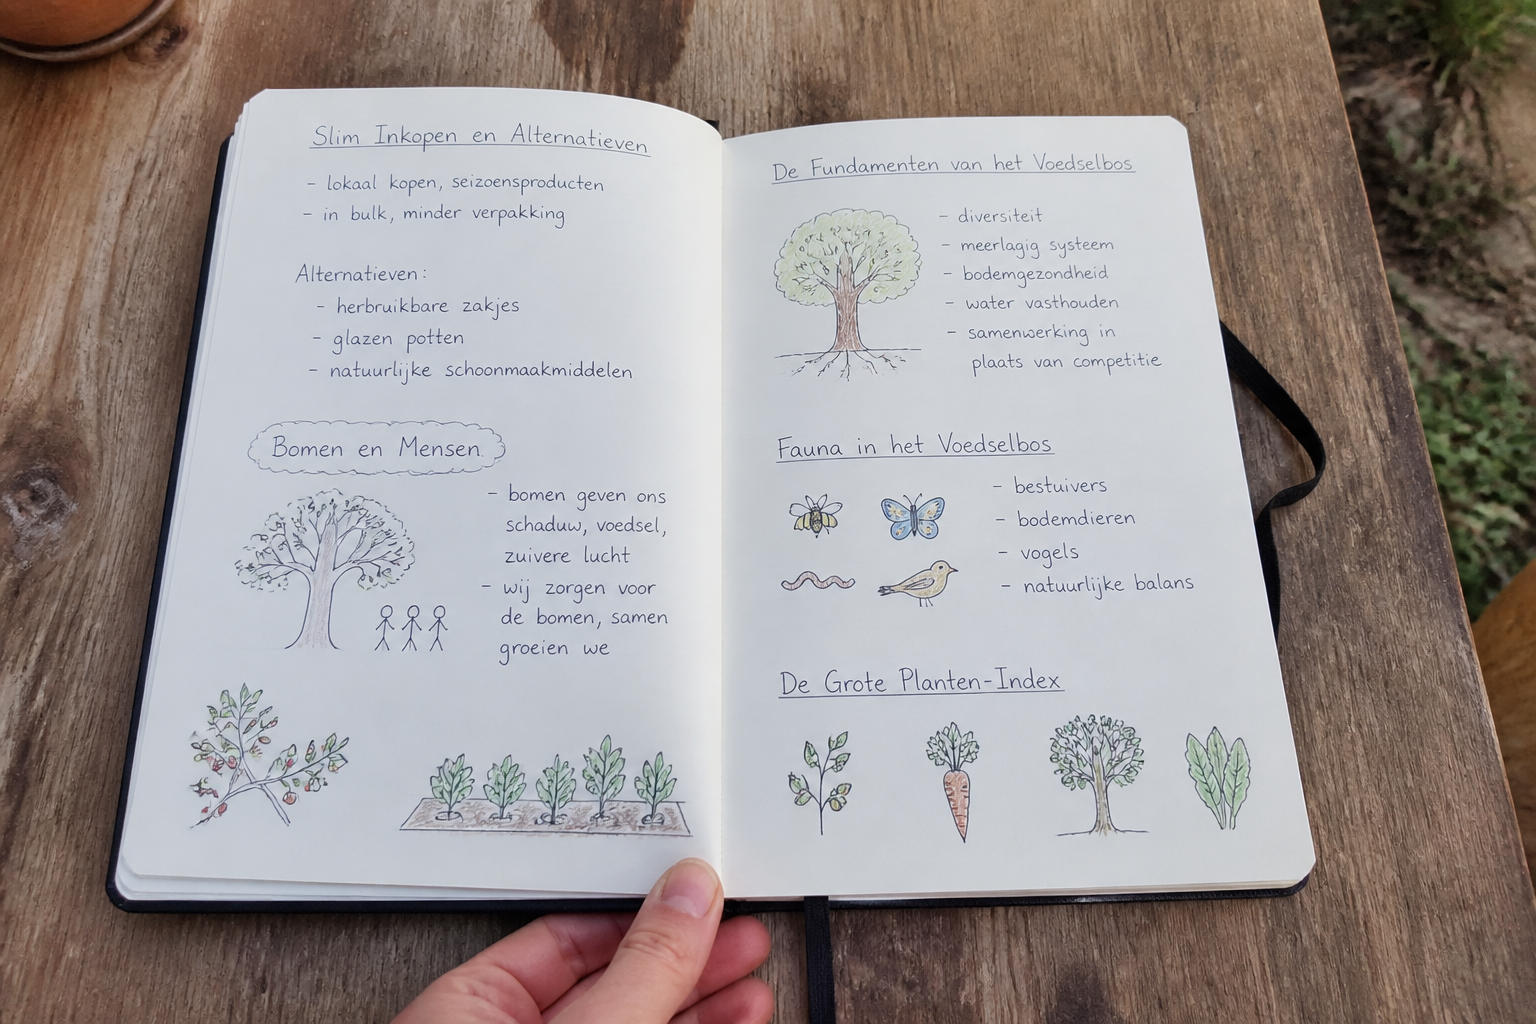 Slim Inkopen en Alternatieven
- lokaal kopen, seizoensproducten
- in bulk, minder verpakking
Alternatieven:
- herbruikbare zakjes
- glazen potten
- natuurlijke schoonmaakmiddelen
Bomen en Mensen
- bomen geven ons
schaduw, voedsel,
zuivere lucht
- wij zorgen voor
de bomen, samen
groeien we
De Fundamenten van het Voedselbos
- diversiteit
- meerlagig systeem
- bodemgezondheid
- water vasthouden
- samenwerking in
plaats van competitie
Fauna in het Voedselbos
- bestuivers
- bodemdieren
- vogels
- natuurlijke balans
De Grote Planten-Index